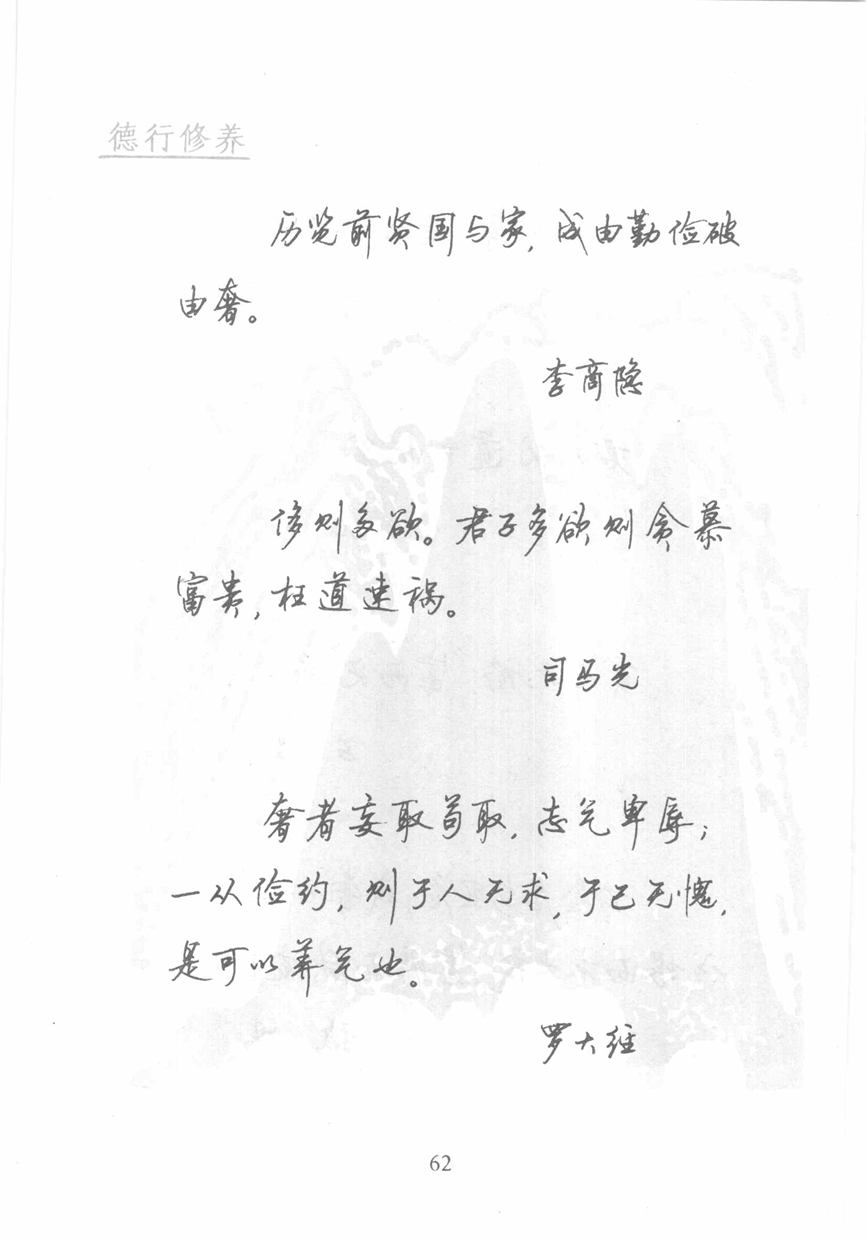 德行修养
历览前贤国与家，成由勤俭破
由奢。
李商隐
侈则多欲。君子多欲则贪慕
富贵，枉道速祸。
司马光
奢者妄取苟取，志气卑辱；
一从俭约，则于人无求，于己无愧，
是可以养气也。
罗大经
62